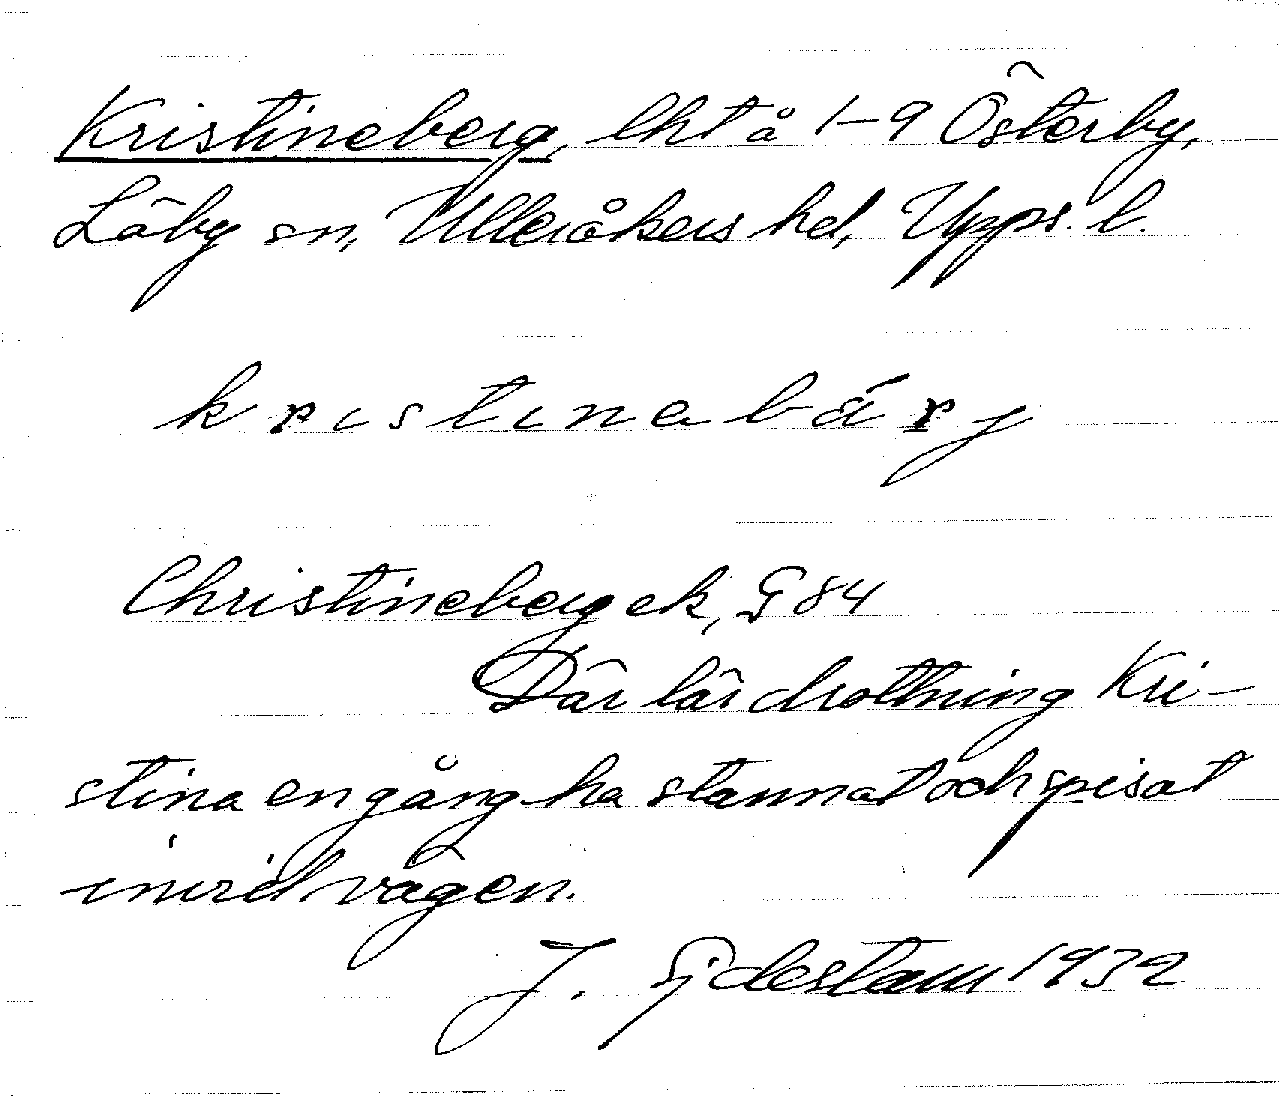 Kristineberg, lht å 1-9 Österby,
Läby sn, Ulleråkers hd, Upps. l.
kristinabärj
Christineberg ek, G 84
Där lär drottning Kri-
stina en gång ha stannat och spisat
invid vägen.
J. Gidestam 1932